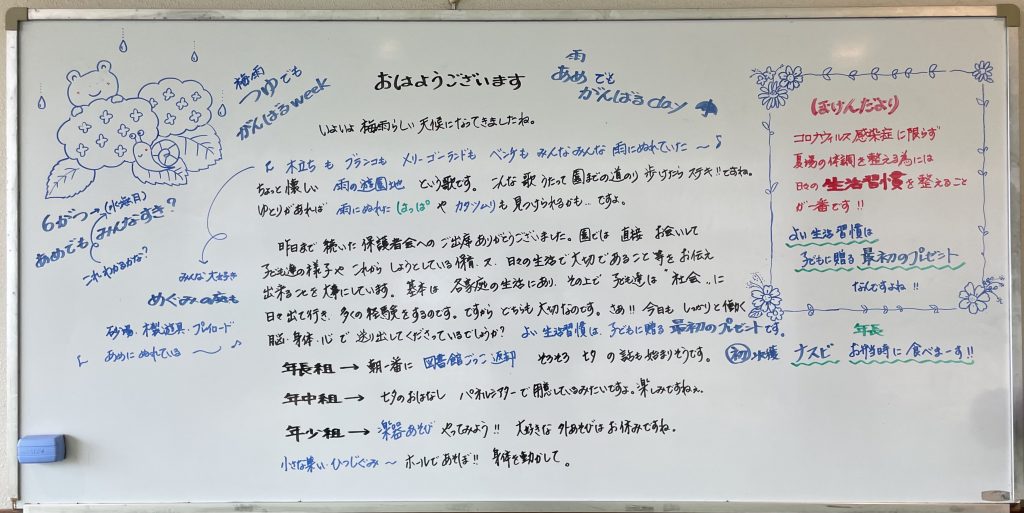 梅雨
つゆでも
がんばるweek
おはようございます
雨
あめでも
がんばるday
いよいよ 梅雨らしい 天候になってきましたね。
木立ち も ブランコも メリーゴーランドも ベンチも みんなみんな 雨にぬれていた 〜♪
ちょっと懐しい 雨の遊園地 という歌です。こんな歌 うたって 園までの道のり 歩けたら ステキ!!ですね。
ゆとりがあれば 雨にぬれた はっぱ や カタツムリも 見つけられるかも‥ですよ。
6がつ→(水無月)
あめでも みんなすき?
これ わかるかな?
みんな大好き
めぐみの庭も
砂場・木製遊具・プレイロード
あめに ぬれている 〜♪
昨日まで 続いた 保護者会への ご出席ありがとうございました。園では 直接 お会いして
子ども達の様子や これから しようとしている保育、又、日々の生活で大切であること等をお伝え
出来ることを 大事にしています。基本は 各家庭の生活にあり、その上で 子ども達は "社会‥に
日々 出て行き、多くの経験をするのです。ですから どちらも 大切なのです。さあ!! 今日も しっかりと 働く
脳・身体・心 で 送り出してくださっているでしょうか? よい 生活習慣は、子どもに贈る 最初のプレゼントです。
年長組 → 朝一番に 図書館ごっこ 返却 そろそろ 七夕 の話も始まりそうです。
初 収穫 ナスビ 年長 お弁当時に食べまーす!!
年中組 → 七夕のおはなし パネルシアターで用意しているみたいですよ。楽しみですねぇ。
年少組 → 楽器あそび やってみよう!! 大好きな 外あそびは お休みですね。
小さな集い・ひつじぐみ 〜 ホールであそぼ!! 身体を動かして。
ほけんだより
コロナウィルス感染症に限らず
夏場の体調を整える為には
日々の 生活習慣を整えること
が一番です!!
よい 生活習慣は
子どもに贈る 最初のプレゼント
なんですよね!!